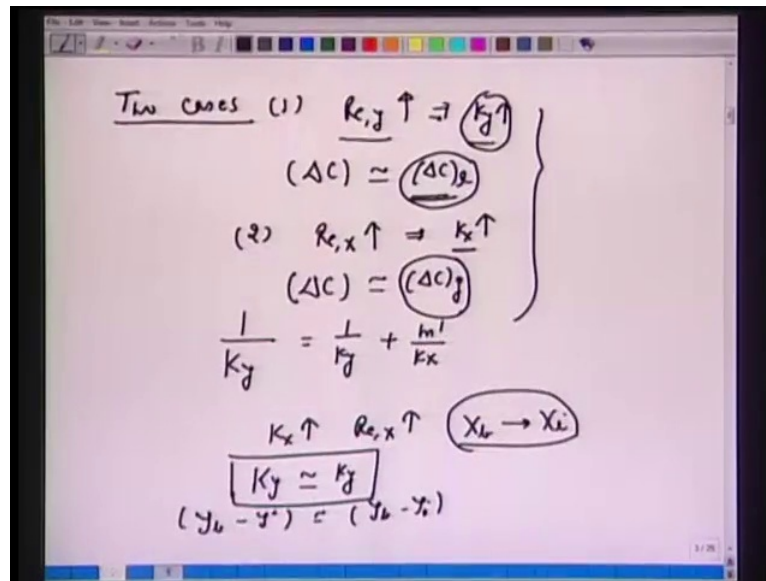 File Edit View Insert Actions Tools Help
Two cases (1) Re,y ↑ ⇒ ky↑
(ΔC) ≃ (ΔC)l
(2) Re,x ↑ ⇒ kx↑
(ΔC) ≃ (ΔC)g
1/Ky = 1/ky + m'/kx
kx ↑ Re,x ↑ Xb → Xi
Ky ≃ ky
(yb - y*) = (yb - yi)